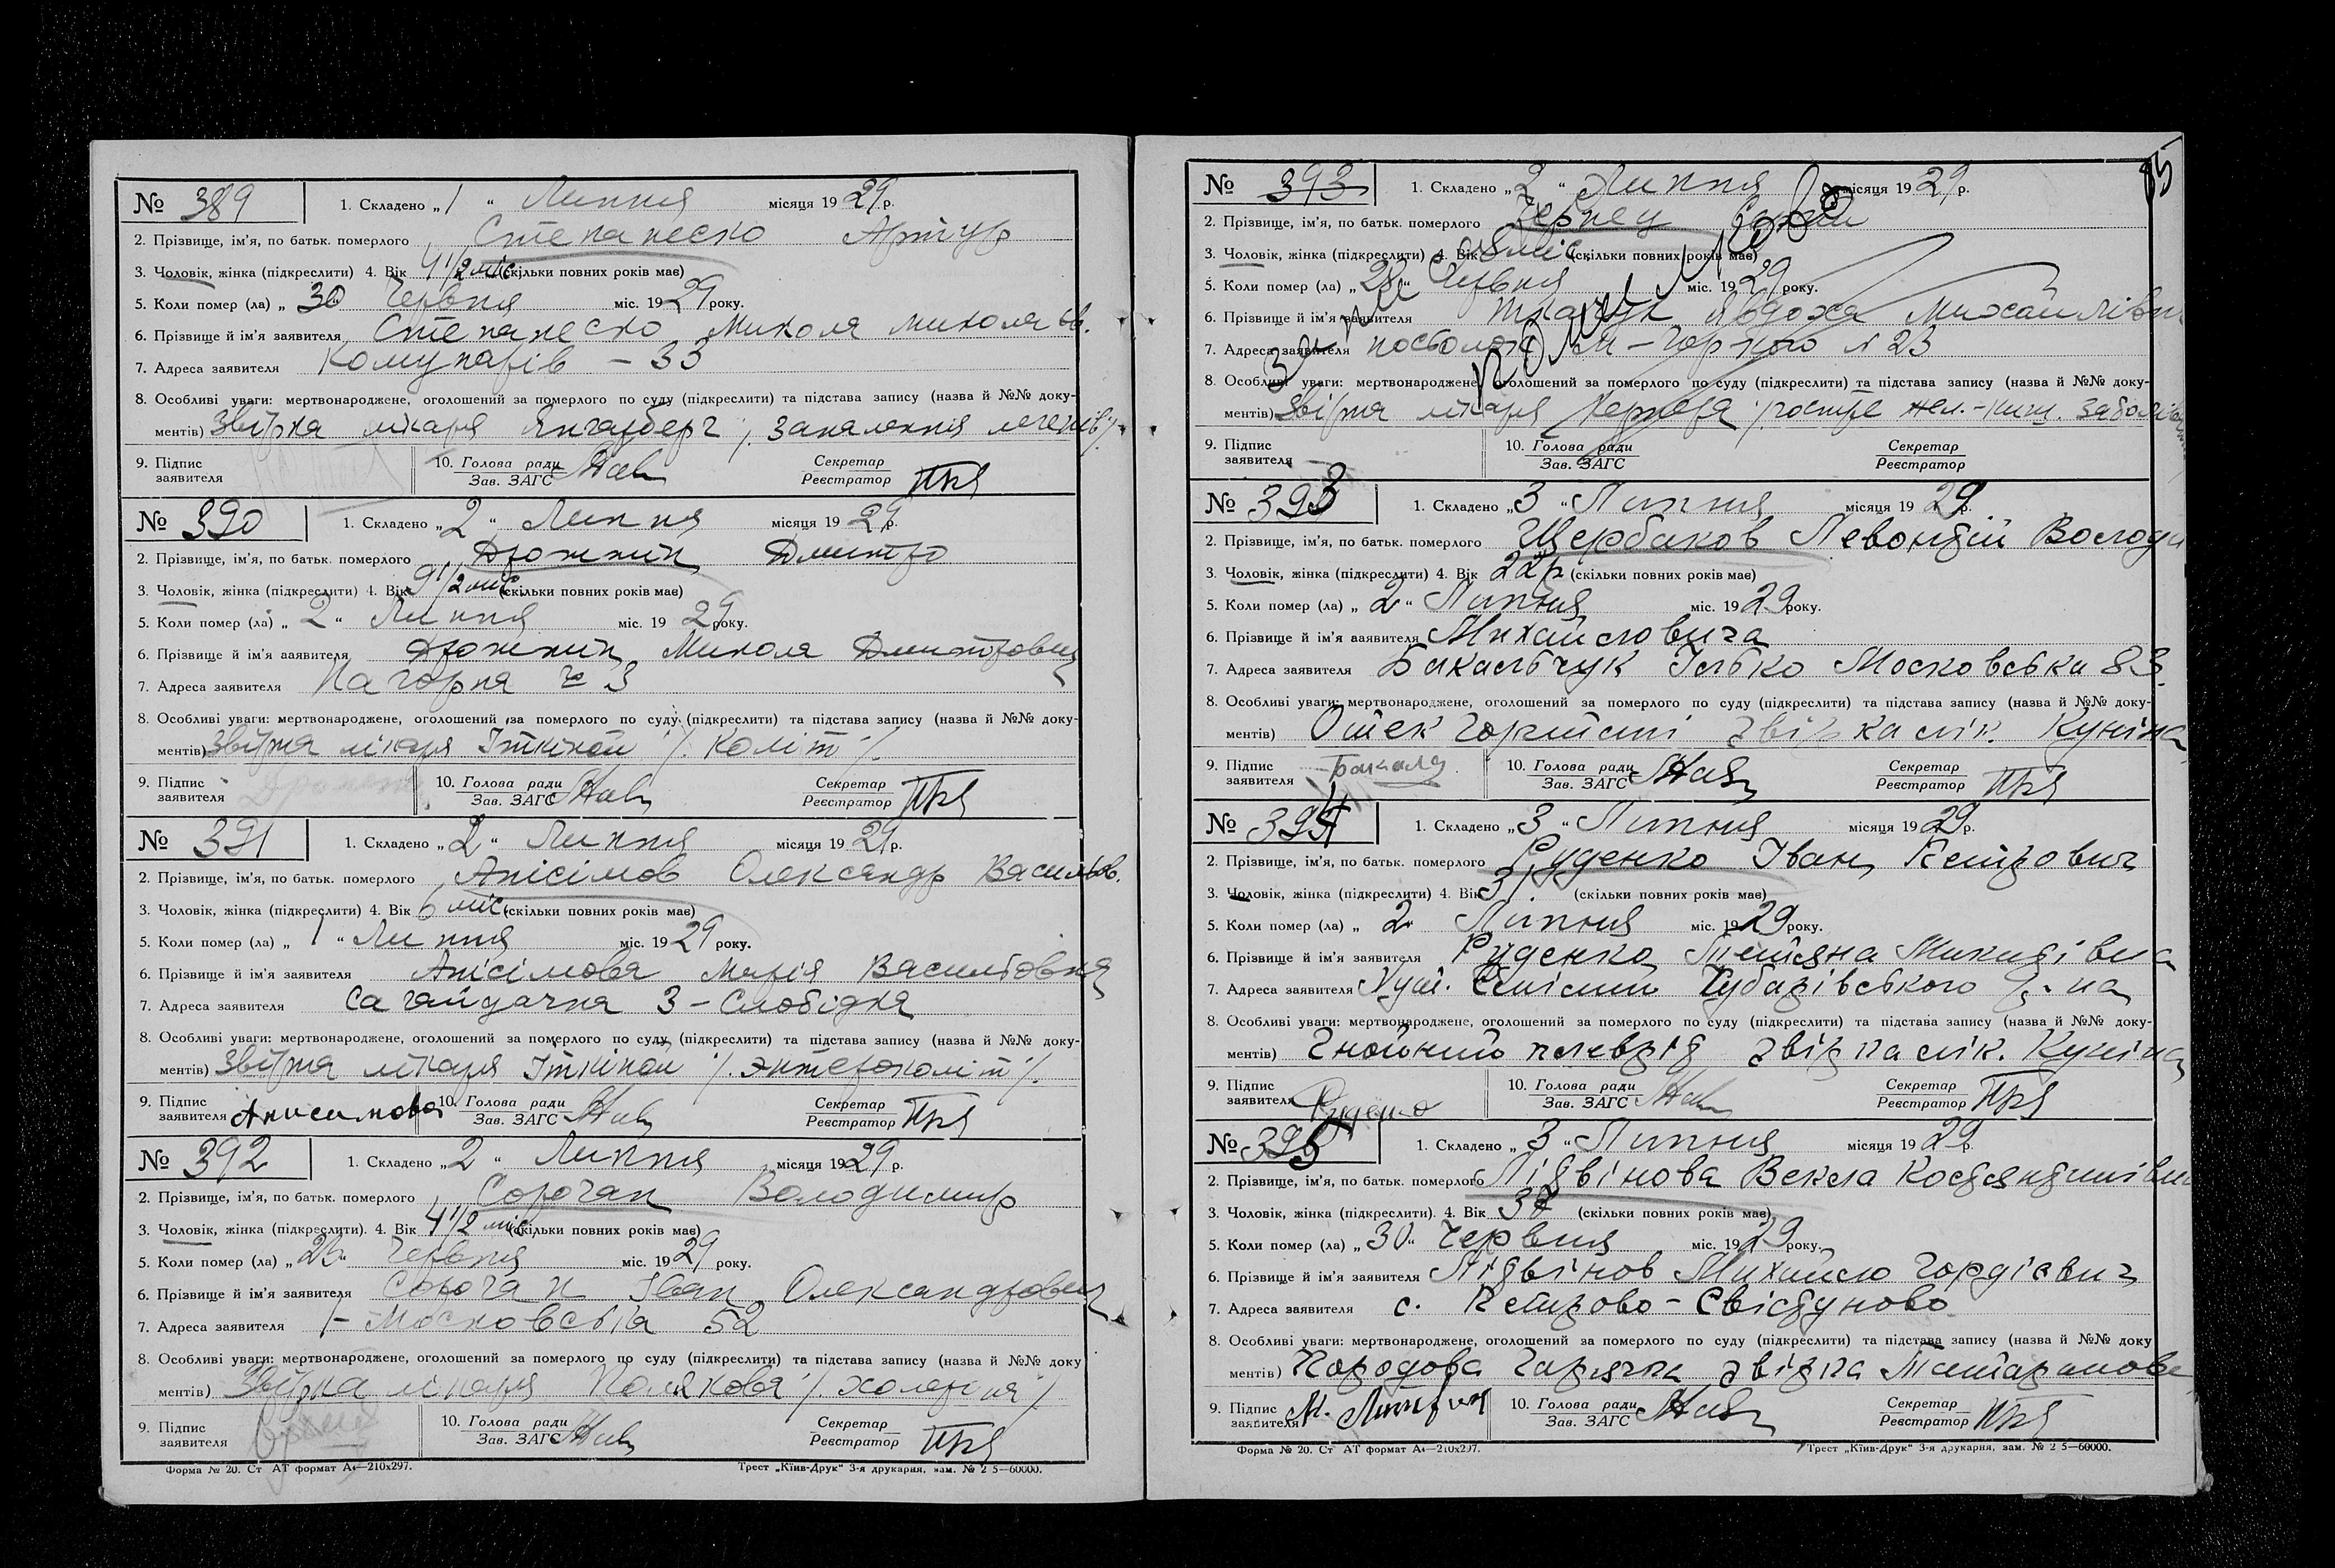 № 389 1. Складено „1“ Липня місяця 1929 р.
2. Прізвище, ім'я, по батьк. померлого Степанеско Артур
3. Чоловік, жінка (підкреслити) 4. Вік 4 1/2 міс (скільки повних років має)
5. Коли помер (ла) „30“ Червня міс. 1929 року.
6. Прізвище й ім'я заявителя Степанеско Микола Миколаєв.
7. Адреса заявителя Комунарів – 33
8. Особливі уваги: мертвонароджене, оголошений за померлого по суду (підкреслити) та підстава запису (назва й №№ доку-
ментів) Звірка лікаря Янгарберг /. Запалення легенів /.
9. Підпис заявителя 10. Голова ради Зав. ЗАГС Секретар Реєстратор
№ 390 1. Складено „2“ Липня місяця 1929 р.
2. Прізвище, ім'я, по батьк. померлого Дрожжин Дмитро
3. Чоловік, жінка (підкреслити) 4. Вік 9 1/2 міс (скільки повних років має)
5. Коли помер (ла) „2“ Липня міс. 1929 року.
6. Прізвище й ім'я заявителя Дрожжин Микола Дмитрович
7. Адреса заявителя Нагорна № 3
8. Особливі уваги: мертвонароджене, оголошений за померлого по суду (підкреслити) та підстава запису (назва й №№ доку-
ментів) Звірка лікаря Іткіной /. Коліт /.
9. Підпис заявителя 10. Голова ради Зав. ЗАГС Секретар Реєстратор
№ 391 1. Складено „2“ Липня місяця 1929 р.
2. Прізвище, ім'я, по батьк. померлого Анісімов Олександр Васильов.
3. Чоловік, жінка (підкреслити) 4. Вік 6 міс (скільки повних років має)
5. Коли помер (ла) „1“ Липня міс. 1929 року.
6. Прізвище й ім'я заявителя Анісімова Марія Васильовна
7. Адреса заявителя Сагайдачна 3 – Слобідка
8. Особливі уваги: мертвонароджене, оголошений за померлого по суду (підкреслити) та підстава запису (назва й №№ доку-
ментів) Звірка лікаря Іткіной /. Энтероколіт /.
9. Підпис заявителя Анисимова 10. Голова ради Зав. ЗАГС Секретар Реєстратор
№ 392 1. Складено „2“ Липня місяця 1929 р.
2. Прізвище, ім'я, по батьк. померлого Сорочан Володимир
3. Чоловік, жінка (підкреслити). 4. Вік 4 1/2 міс (скільки повних років має)
5. Коли помер (ла) Червня міс. 1929 року.
6. Прізвище й ім'я заявителя Сорочан Іван Олександрович
7. Адреса заявителя 1– Московська 52
8. Особливі уваги: мертвонароджене, оголошений за померлого по суду (підкреслити) та підстава запису (назва й №№ доку
ментів) Звірка лікаря Полякова /. холерина /.
9. Підпис заявителя 10. Голова ради Зав. ЗАГС Секретар Реєстратор
Форма № 20. Ст АТ формат А4—210х297. Трест „Київ-Друк“ 3-я друкарня, зам. № 2 5—60000.
85
№ 393 1. Складено „2“ Липня місяця 1929 р.
2. Прізвище, ім'я, по батьк. померлого Чернец
3. Чоловік, жінка (підкреслити) 4. Вік 8 міс. (скільки повних років має)
5. Коли помер (ла) „28“ Червня міс. 1929 року.
6. Прізвище й ім'я заявителя Ткачук Явдоха Михайлівна
7. Адреса заявителя М – Горького № 23
8. Особливі уваги: мертвонароджене, оголошений за померлого по суду (підкреслити) та підстава запису (назва й №№ доку-
ментів) Звірка лікаря /. гостре жел.-киш.
9. Підпис заявителя 10. Голова ради Зав. ЗАГС Секретар Реєстратор
№ 393 1. Складено „3“ Липня місяця 1929 р.
2. Прізвище, ім'я, по батьк. померлого Щербаков Левонтій Володи
3. Чоловік, жінка (підкреслити) 4. Вік 22 р (скільки повних років має)
5. Коли помер (ла) „2“ Липня міс. 1929 року.
6. Прізвище й ім'я заявителя Михайловича
7. Адреса заявителя Бакальчук Ісько Московська 83.
8. Особливі уваги: мертвонароджене, оголошений за померлого по суду (підкреслити) та підстава запису (назва й №№ доку-
ментів) Отек гортані звірка лік. Куніна
9. Підпис заявителя Бакальч 10. Голова ради Зав. ЗАГС Секретар Реєстратор
№ 394 1. Складено „3“ Липня місяця 1929 р.
2. Прізвище, ім'я, по батьк. померлого Руденко Іван Петрович
3. Чоловік, жінка (підкреслити) 4. Вік 31. (скільки повних років має)
5. Коли помер (ла) „2“ Липня міс. 1929 року.
6. Прізвище й ім'я заявителя Руденко Тетяна Микитівна
7. Адреса заявителя Хут. Чубарівського р-на
8. Особливі уваги: мертвонароджене, оголошений за померлого по суду (підкреслити) та підстава запису (назва й №№ доку-
ментів) Гнойний плеврід звірка лік. Куніна
9. Підпис заявителя Руденко 10. Голова ради Зав. ЗАГС Секретар Реєстратор
№ 395 1. Складено „3“ Липня місяця 1929 р.
2. Прізвище, ім'я, по батьк. померлого Літвінова Векла Костянтинівна
3. Чоловік, жінка (підкреслити). 4. Вік 37 (скільки повних років має)
5. Коли помер (ла) „30“ Червня міс. 1929 року.
6. Прізвище й ім'я заявителя Літвінов Михайло Гордієвич
7. Адреса заявителя с. Петрово – Свістуново
8. Особливі уваги: мертвонароджене, оголошений за померлого по суду (підкреслити) та підстава запису (назва й №№ доку
ментів) Породова гарячка звірка
9. Підпис заявителя М. Литвин 10. Голова ради Зав. ЗАГС Секретар Реєстратор
Форма № 20. Ст АТ формат А4—210х297. Трест „Київ-Друк“ 3-я друкарня, зам. № 2 5—60000.